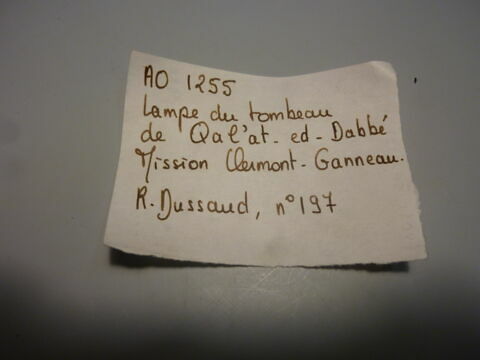 AO 1255
Lampe du tombeau
de Qal'at-ed-Dabbé
Mission Clermont-Ganneau.
R. Dussaud, n° 197